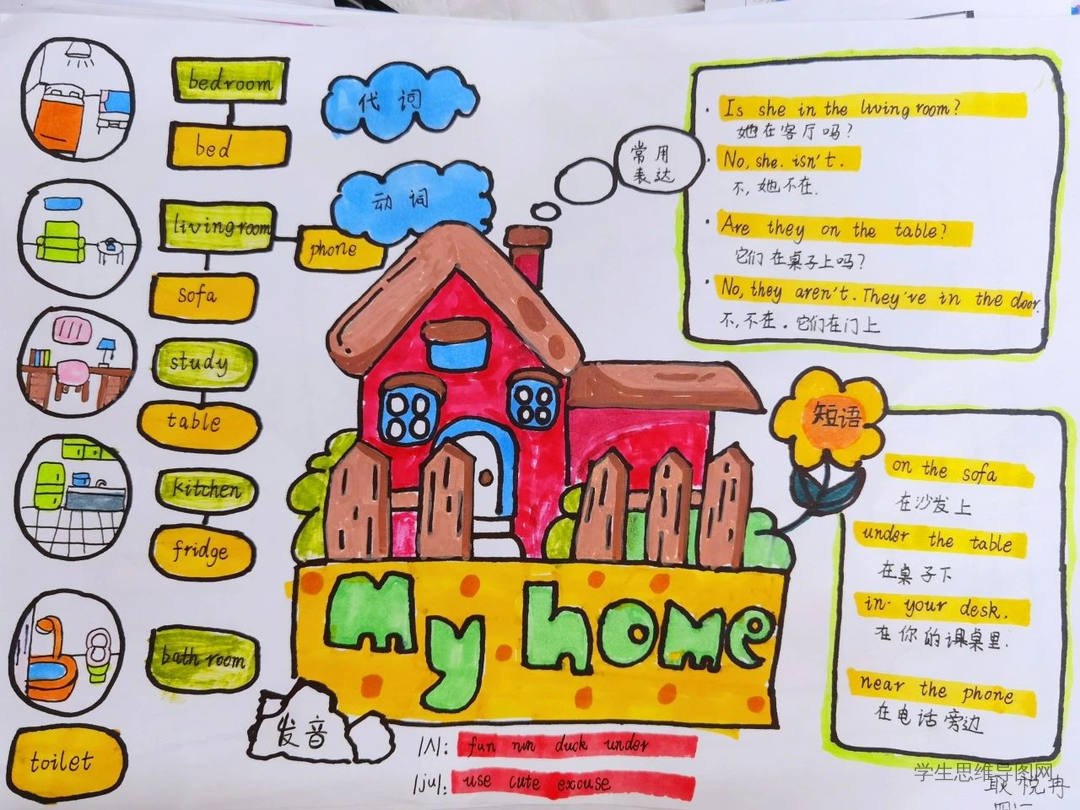 bedroom
bed
livingroom
phone
sofa
study
table
kitchen
fridge
bathroom
toilet
代词
动词
常用
表达
Is she in the livingroom?
她在客厅吗?
No, she. isn't.
不,她不在.
Are they on the table?
它们在桌子上吗?
No, they aren't. They've in the door.
不,不在。它们在门上
短语
on the sofa
在沙发上
under the table
在桌子下
in your desk.
在你的课桌里.
near the phone
在电话旁边
My home
发音
/ʌ/: fun run duck under
/ju/: use cute excuse
学生思维导图网